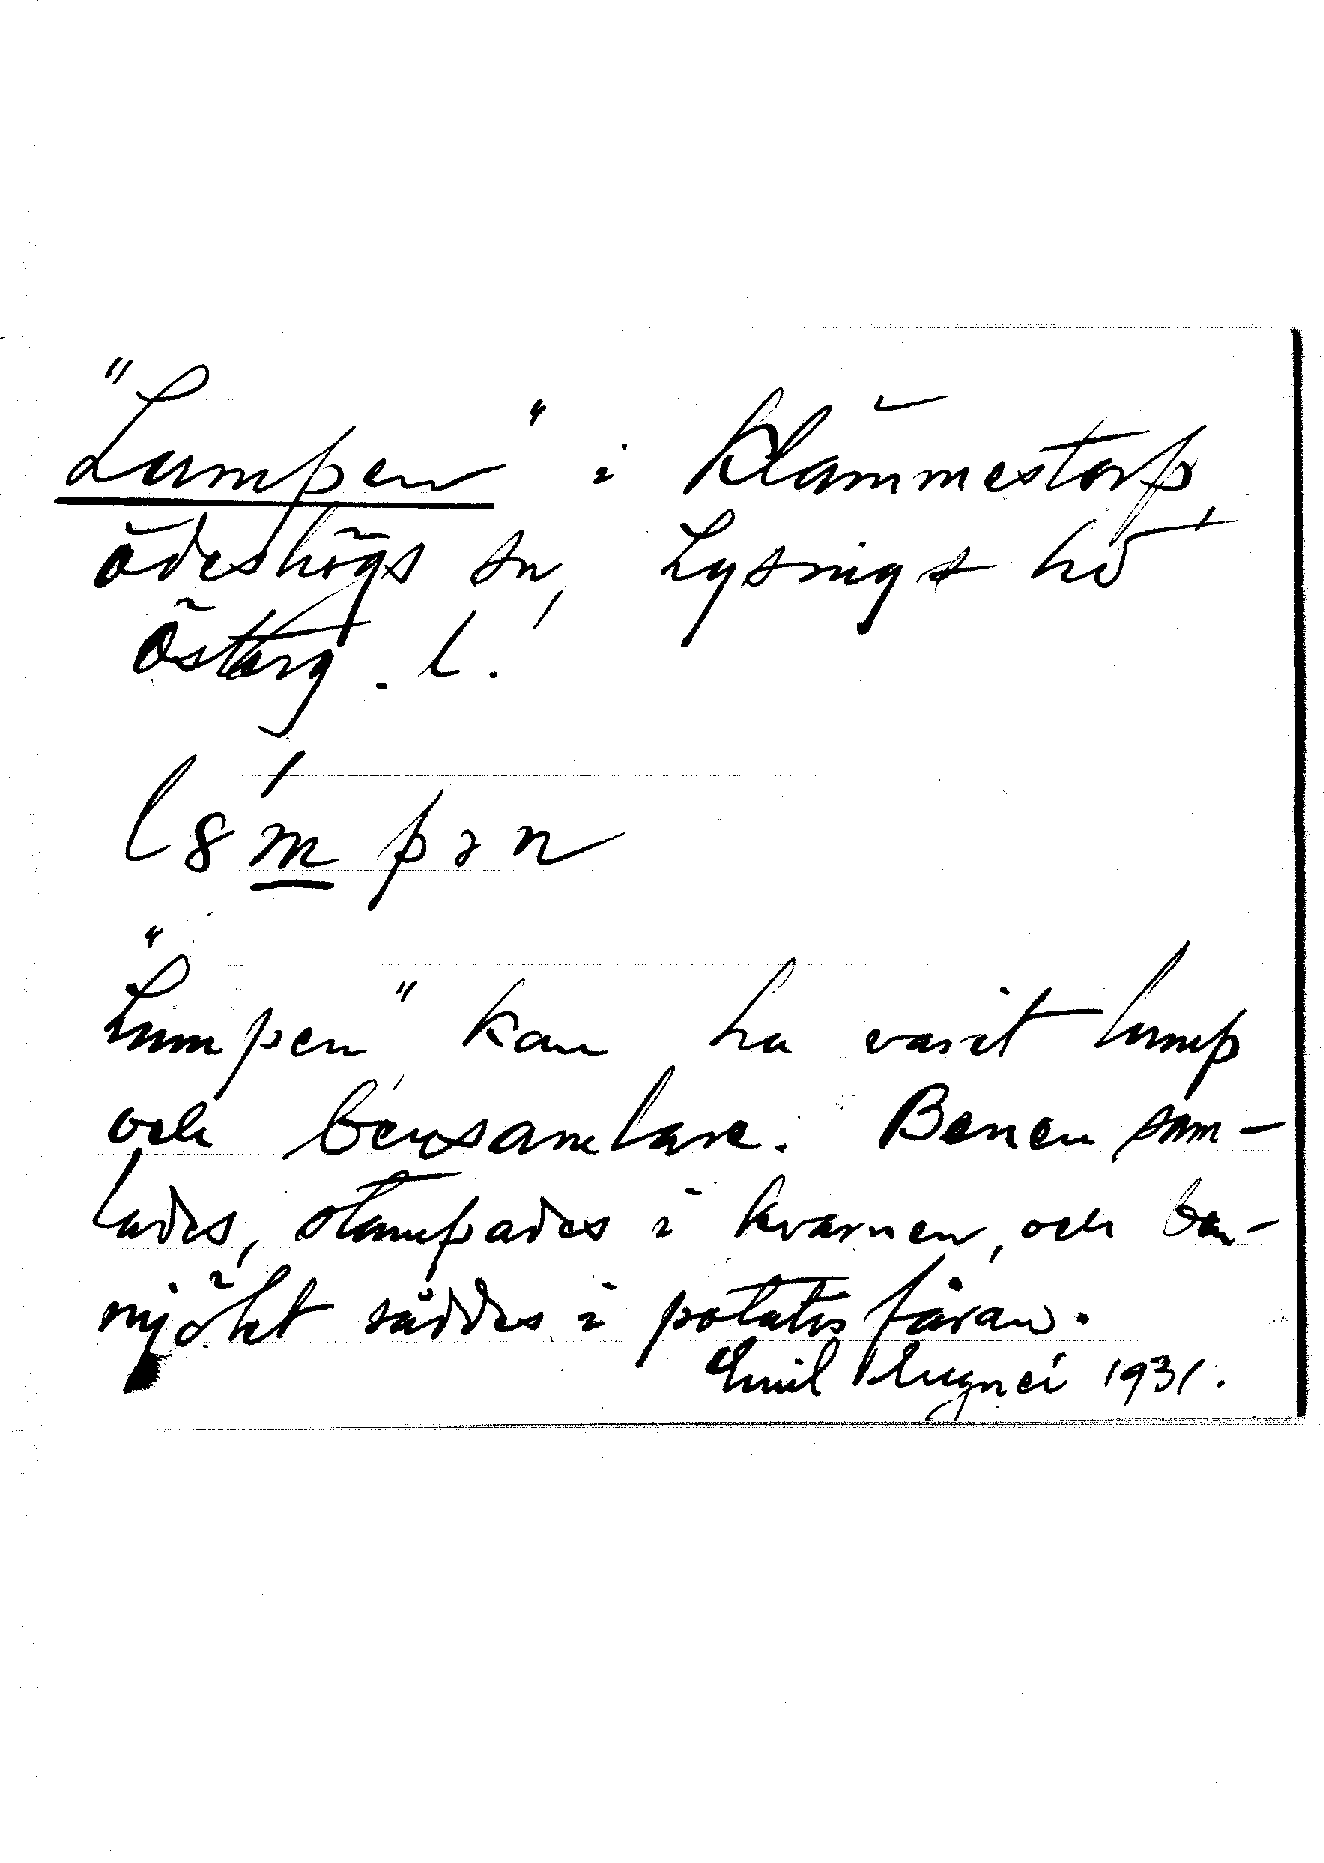 "Lumpen" i Klämmestorp,
Ödeshögs sn, Lysings hd
Österg. l.
l8mpən
"Lumpen" kan ha varit lump
och bensamlare. Benen sam-
lades, stampades i kvarnen, och ben-
mjölet såddes i potatisfåran.
Emil 1931.